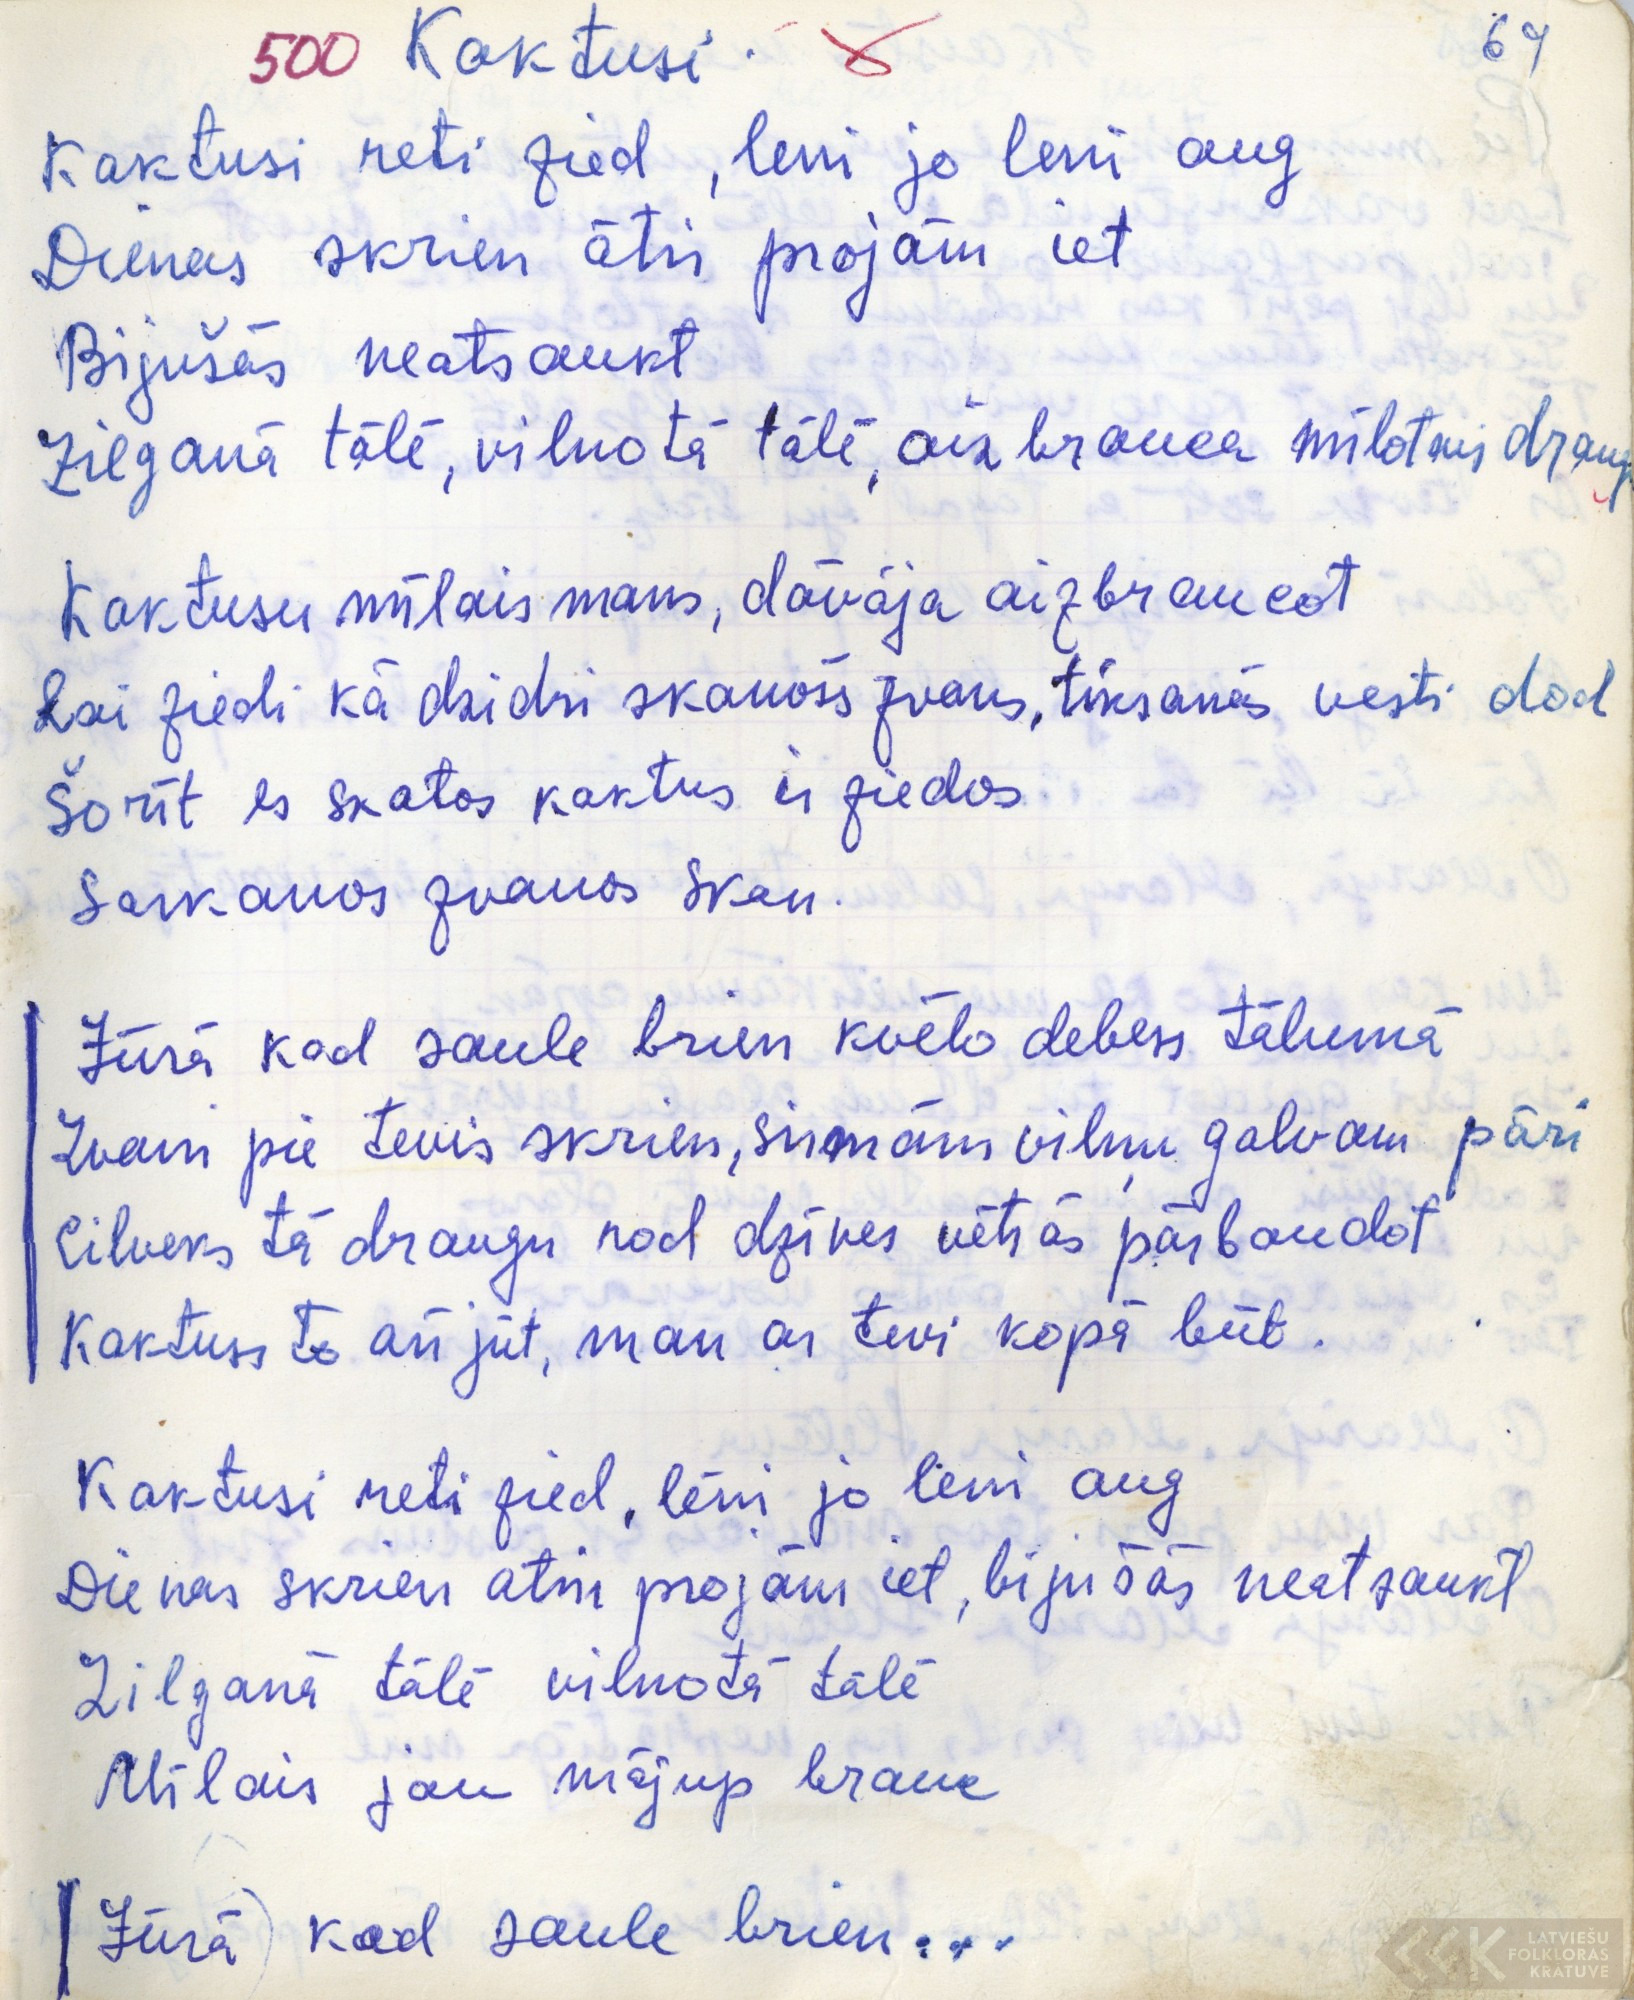 500 Kaktusi. 64
Kaktusi reti zied, leni jo leni aug
Dienas skrien ātri projām iet
Bijušās neatsaukt
Zilganā tālē, vilnotā tālē, aizbrauca mīlotais draugs
Kaktusu mīlais mans, dāvāja aizbraucot
Lai ziedi kā dzidri skanošs zvans, tikšanās vesti dod
Šorīt es skatos kaktus ir ziedos
Sarkanos zvanos skan.
Jūrā kad saule brien kvēlo debess tālumā
Zvani pie tevis skrien, simām vilnu galvam pāri
Cilveks tā draugu rod dzīves vētrās pārbaudot
Kaktuss to arī jūt, man ar tevi kopā būt.
Kaktusi reti zied, lēni jo leni aug
Dienas skrien atri projām iet, bijušās neatsaukt
Zilganā tālē vilnotā tālē
Mīlais jau mājup brauc
Jūrā) kad saule brien....
LATVIEŠU
FOLKLORAS
KRATUVE